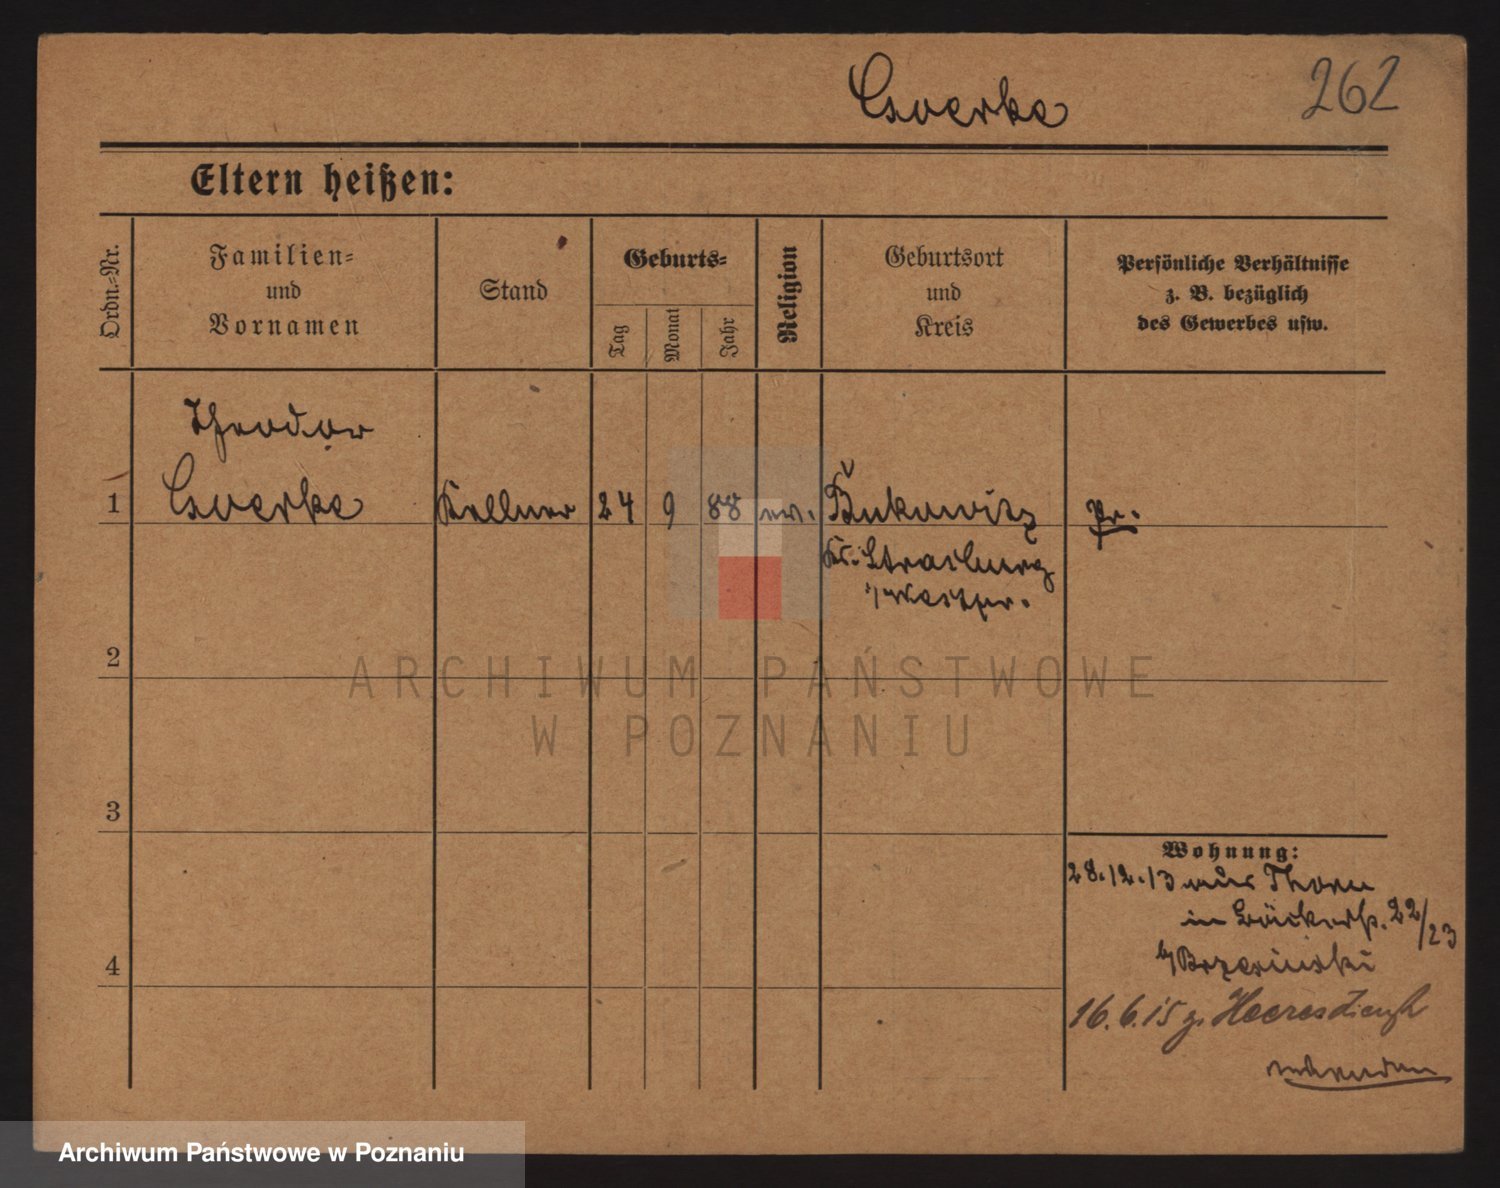 Goerke
262
Eltern heißen:
Ordn.-Nr.
Familien-
und
Vornamen
Stand
Geburts-
Tag
Monat
Jahr
Religion
Geburtsort
und
Kreis
Persönliche Verhältnisse
z. B. bezüglich
des Gewerbes usw.
Theodor
1 Goerke Kellner 24 9 88 ev. Bukowitz Pr.
Kr. Strasburg
i/Westpr.
2
3
4
Wohnung:
28.12.13 aus Thorn
in Bäckerstr. 22/23
b/
16.6.15 z. Heeresdienst
ARCHIWUM PAŃSTWOWE
W POZNANIU
Archiwum Państwowe w Poznaniu